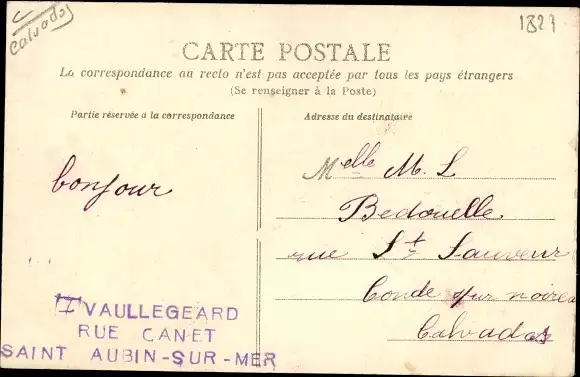 C
Calvados
1829
CARTE POSTALE
La correspondance au recto n'est pas acceptée par tous les pays étrangers
(Se renseigner à la Poste)
Partie réservée à la correspondance
bonjour
Adresse du destinataire
Melle M. L
Bedouelle
rue St Sauveur
Conde sur noireau
Calvados
VAULLEGEARD
RUE CANET
SAINT AUBIN-SUR-MER